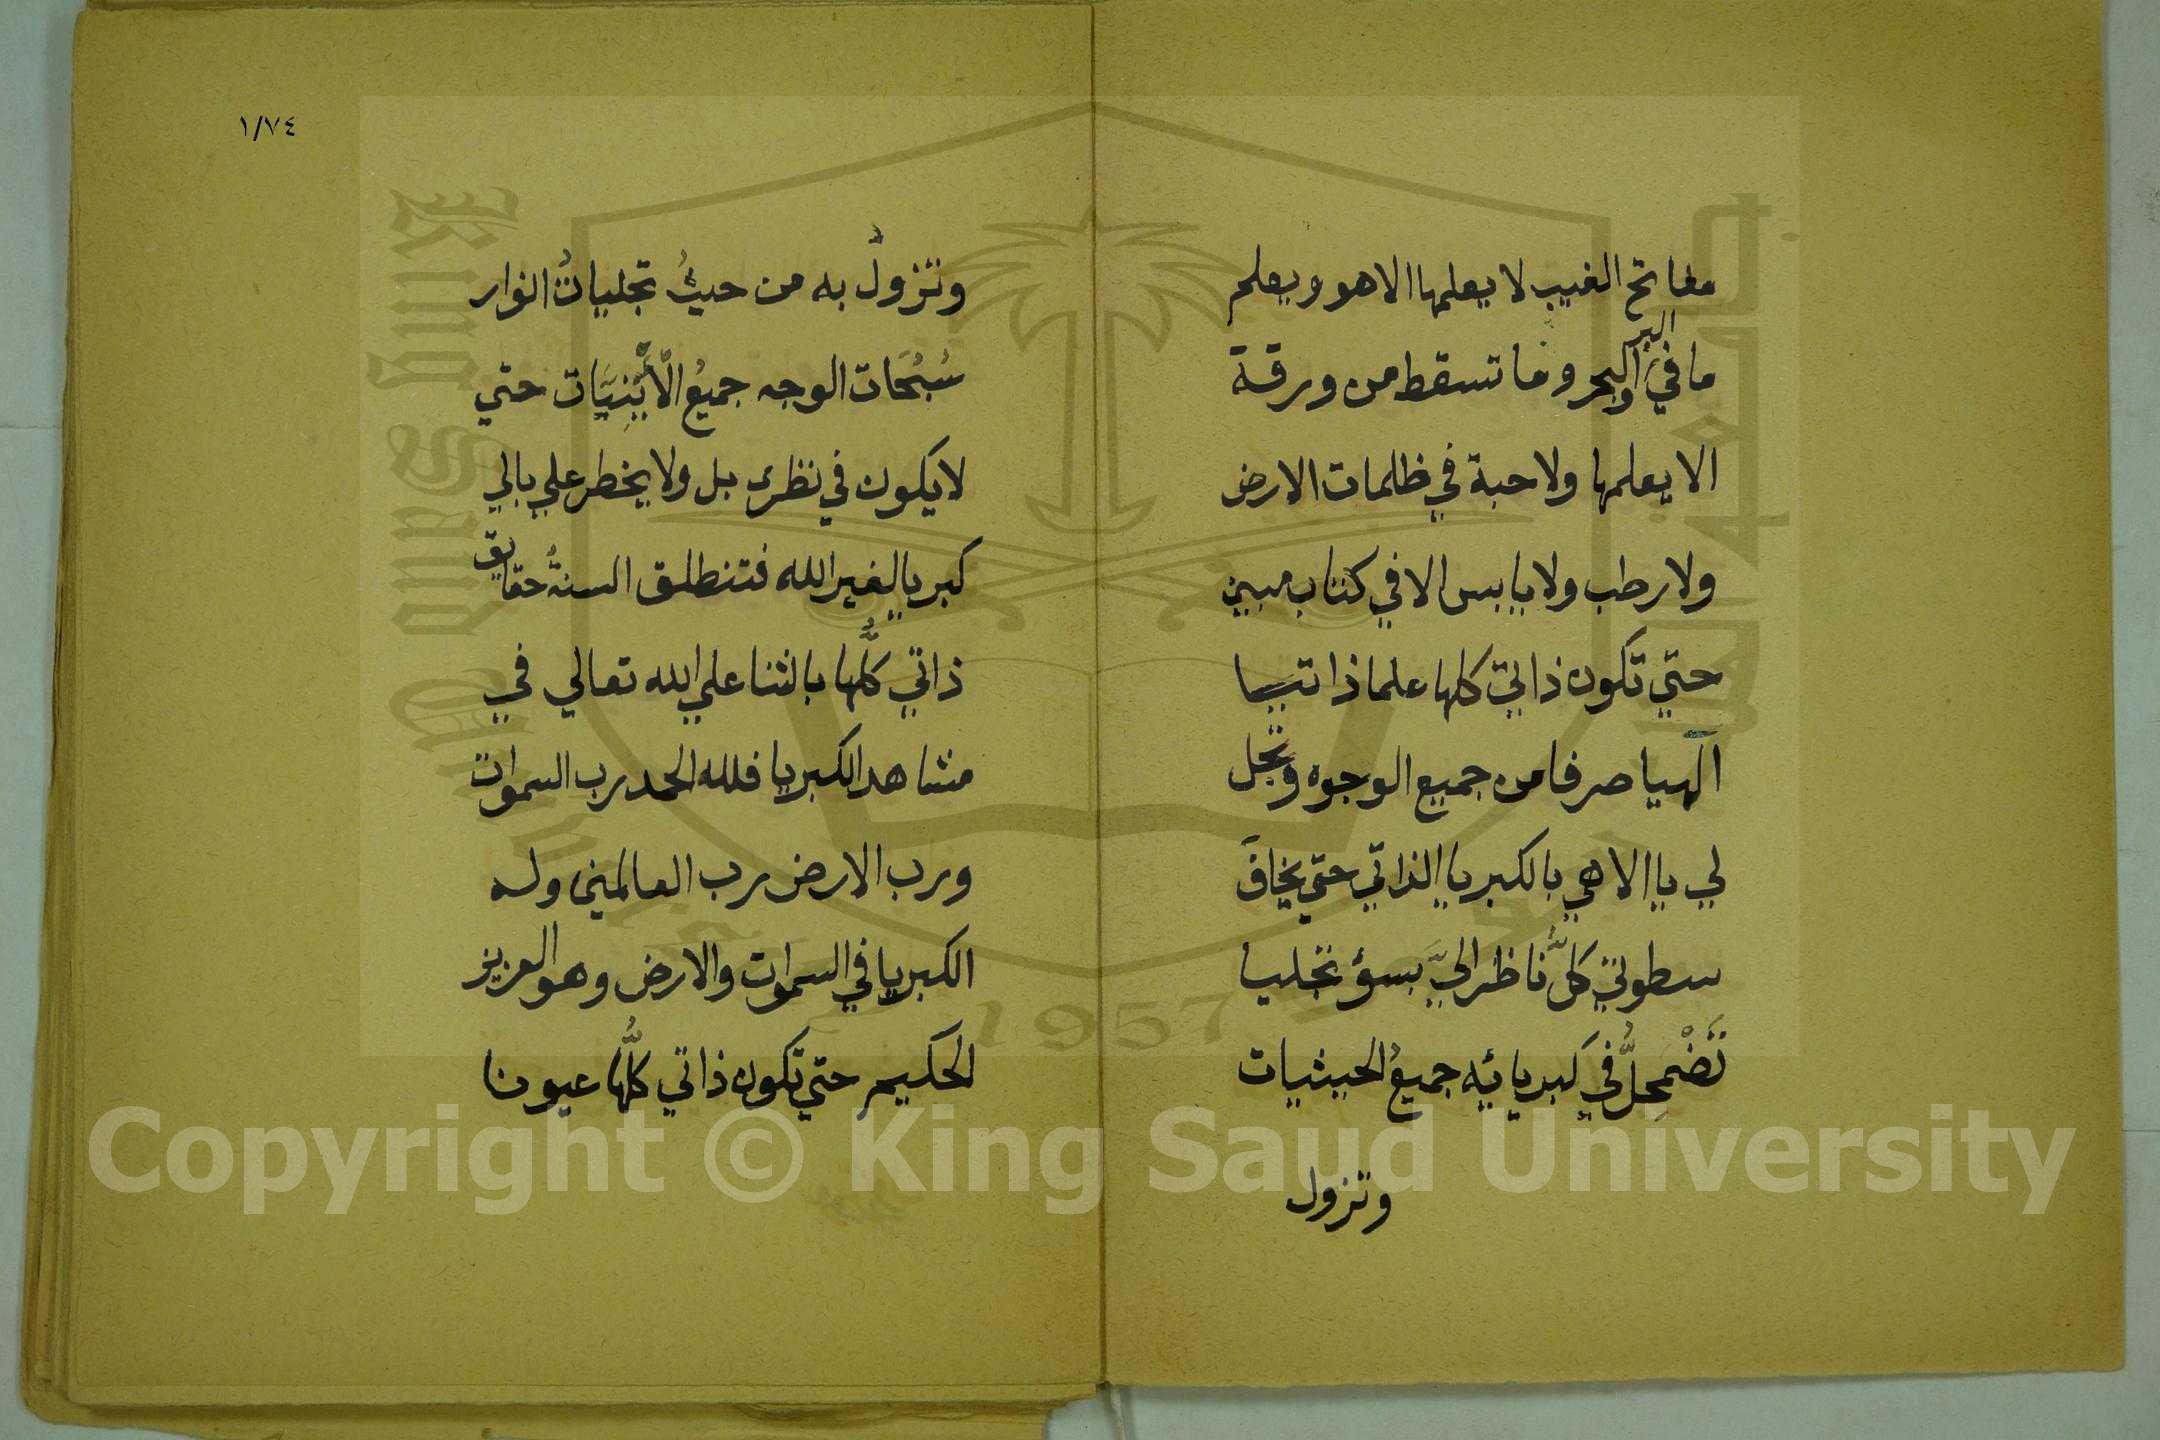 مفاتح الغيب لا يعلمها الا هو ويعلم
ما في البر والبحر وما تسقط من ورقة
الا يعلمها ولا حبة في ظلمات الارض
ولا رطب ولا يابس الا في كتاب مبين
حتي تكون ذاتي كلها علما ذاتيا
الهيا صرفا من جميع الوجوه وتجل
لي يا الاهي بالكبريا الذاتي حتي يخافَ
سطوتي كلُّ ناظر اليَّ بسؤ تجليا
تَضْمَحِلُّ في كبريائه جميعُ الحيثيات
وتزول
١/٧٤
وتزولُ به من حيثُ تجلياتُ انوار
سُبُحَات الوجه جميعُ الْأَيْنِيَّات حتي
لا يكون في نظري بل ولا يخطر علي بالي
كبريا لغير الله فتنطلق السنةُ حقايق
ذاتي كلُّها بالثنا علي الله تعالي في
مشاهد الكبريا فلله الحمد رب السموات
ورب الارض رب العالمين وله
الكبريا في السموات والارض وهو العزيز
الحكيم حتي تكون ذاتي كلُّها عيونا
King Saud University
1957
Copyright © King Saud University